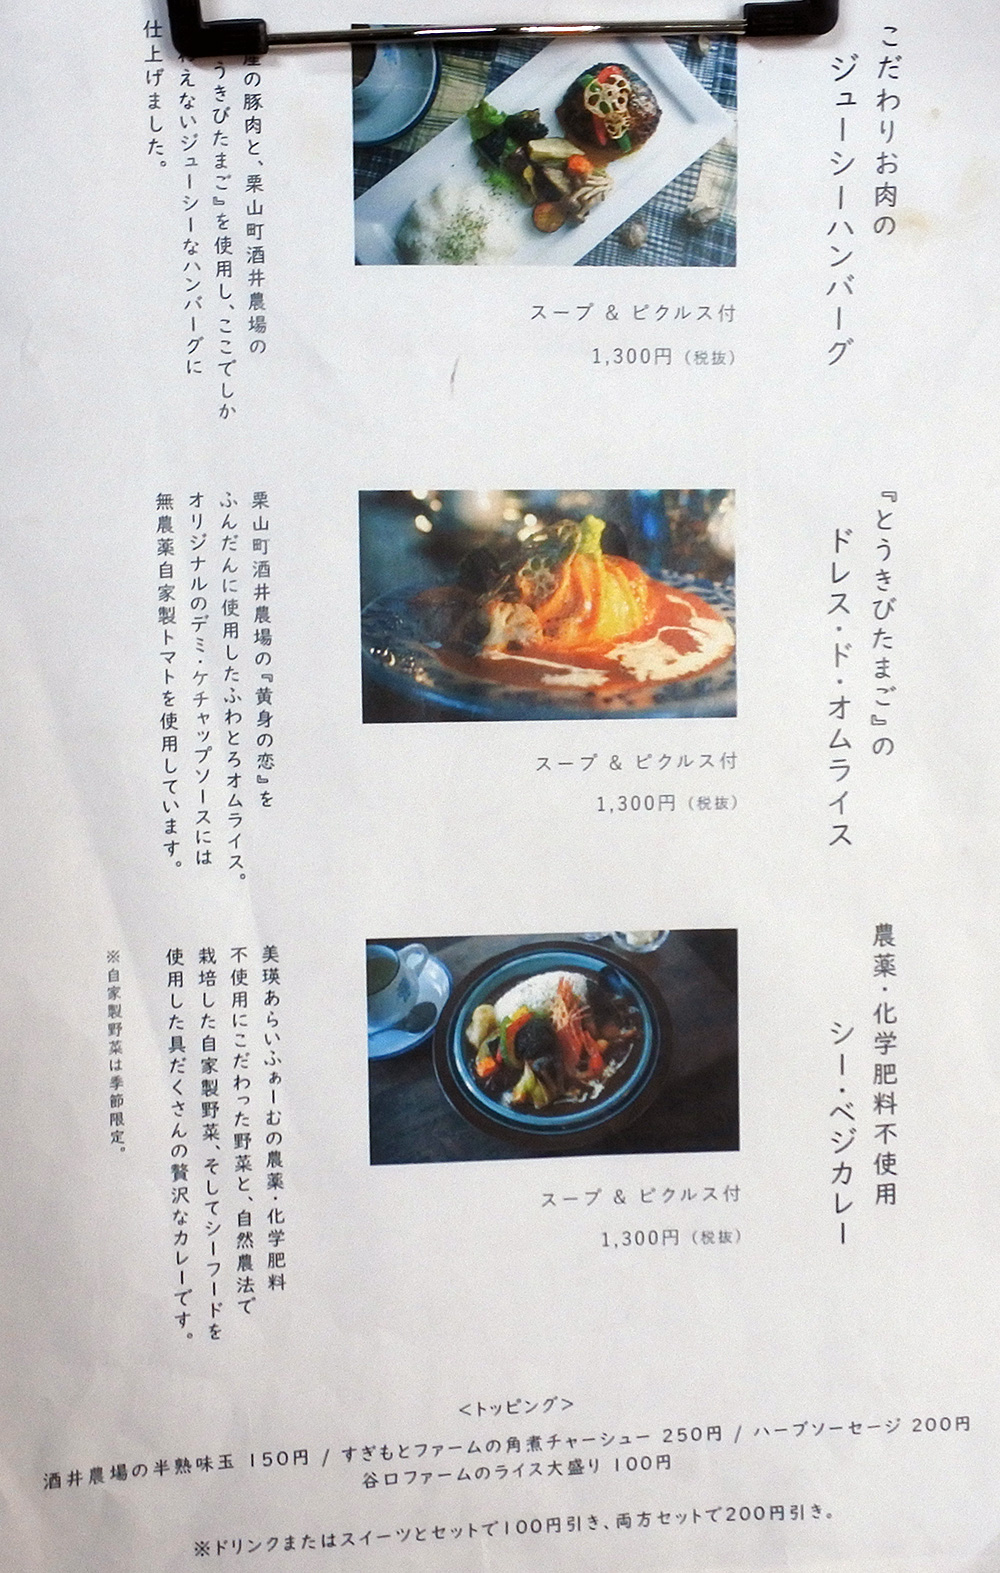 こだわりお肉の
ジューシーハンバーグ
スープ & ピクルス付
1,300円（税抜）
の豚肉と、栗山町酒井農場の
うきびたまご』を使用し、ここでしか
えないジューシーなハンバーグに
仕上げました。
『とうきびたまご』の
ドレス・ド・オムライス
スープ & ピクルス付
1,300円（税抜）
栗山町酒井農場の『黄身の恋』を
ふんだんに使用したふわとろオムライス。
オリジナルのデミ・ケチャップソースには
無農薬自家製トマトを使用しています。
農薬・化学肥料不使用
シー・ベジカレー
スープ & ピクルス付
1,300円（税抜）
美瑛あらいふぁーむの農薬・化学肥料
不使用にこだわった野菜と、自然農法で
栽培した自家製野菜、そしてシーフードを
使用した具だくさんの贅沢なカレーです。
※自家製野菜は季節限定。
<トッピング>
酒井農場の半熟味玉 150円 / すぎもとファームの角煮チャーシュー 250円 / ハーブソーセージ 200円
谷口ファームのライス大盛り 100円
※ドリンクまたはスイーツとセットで100円引き、両方セットで200円引き。